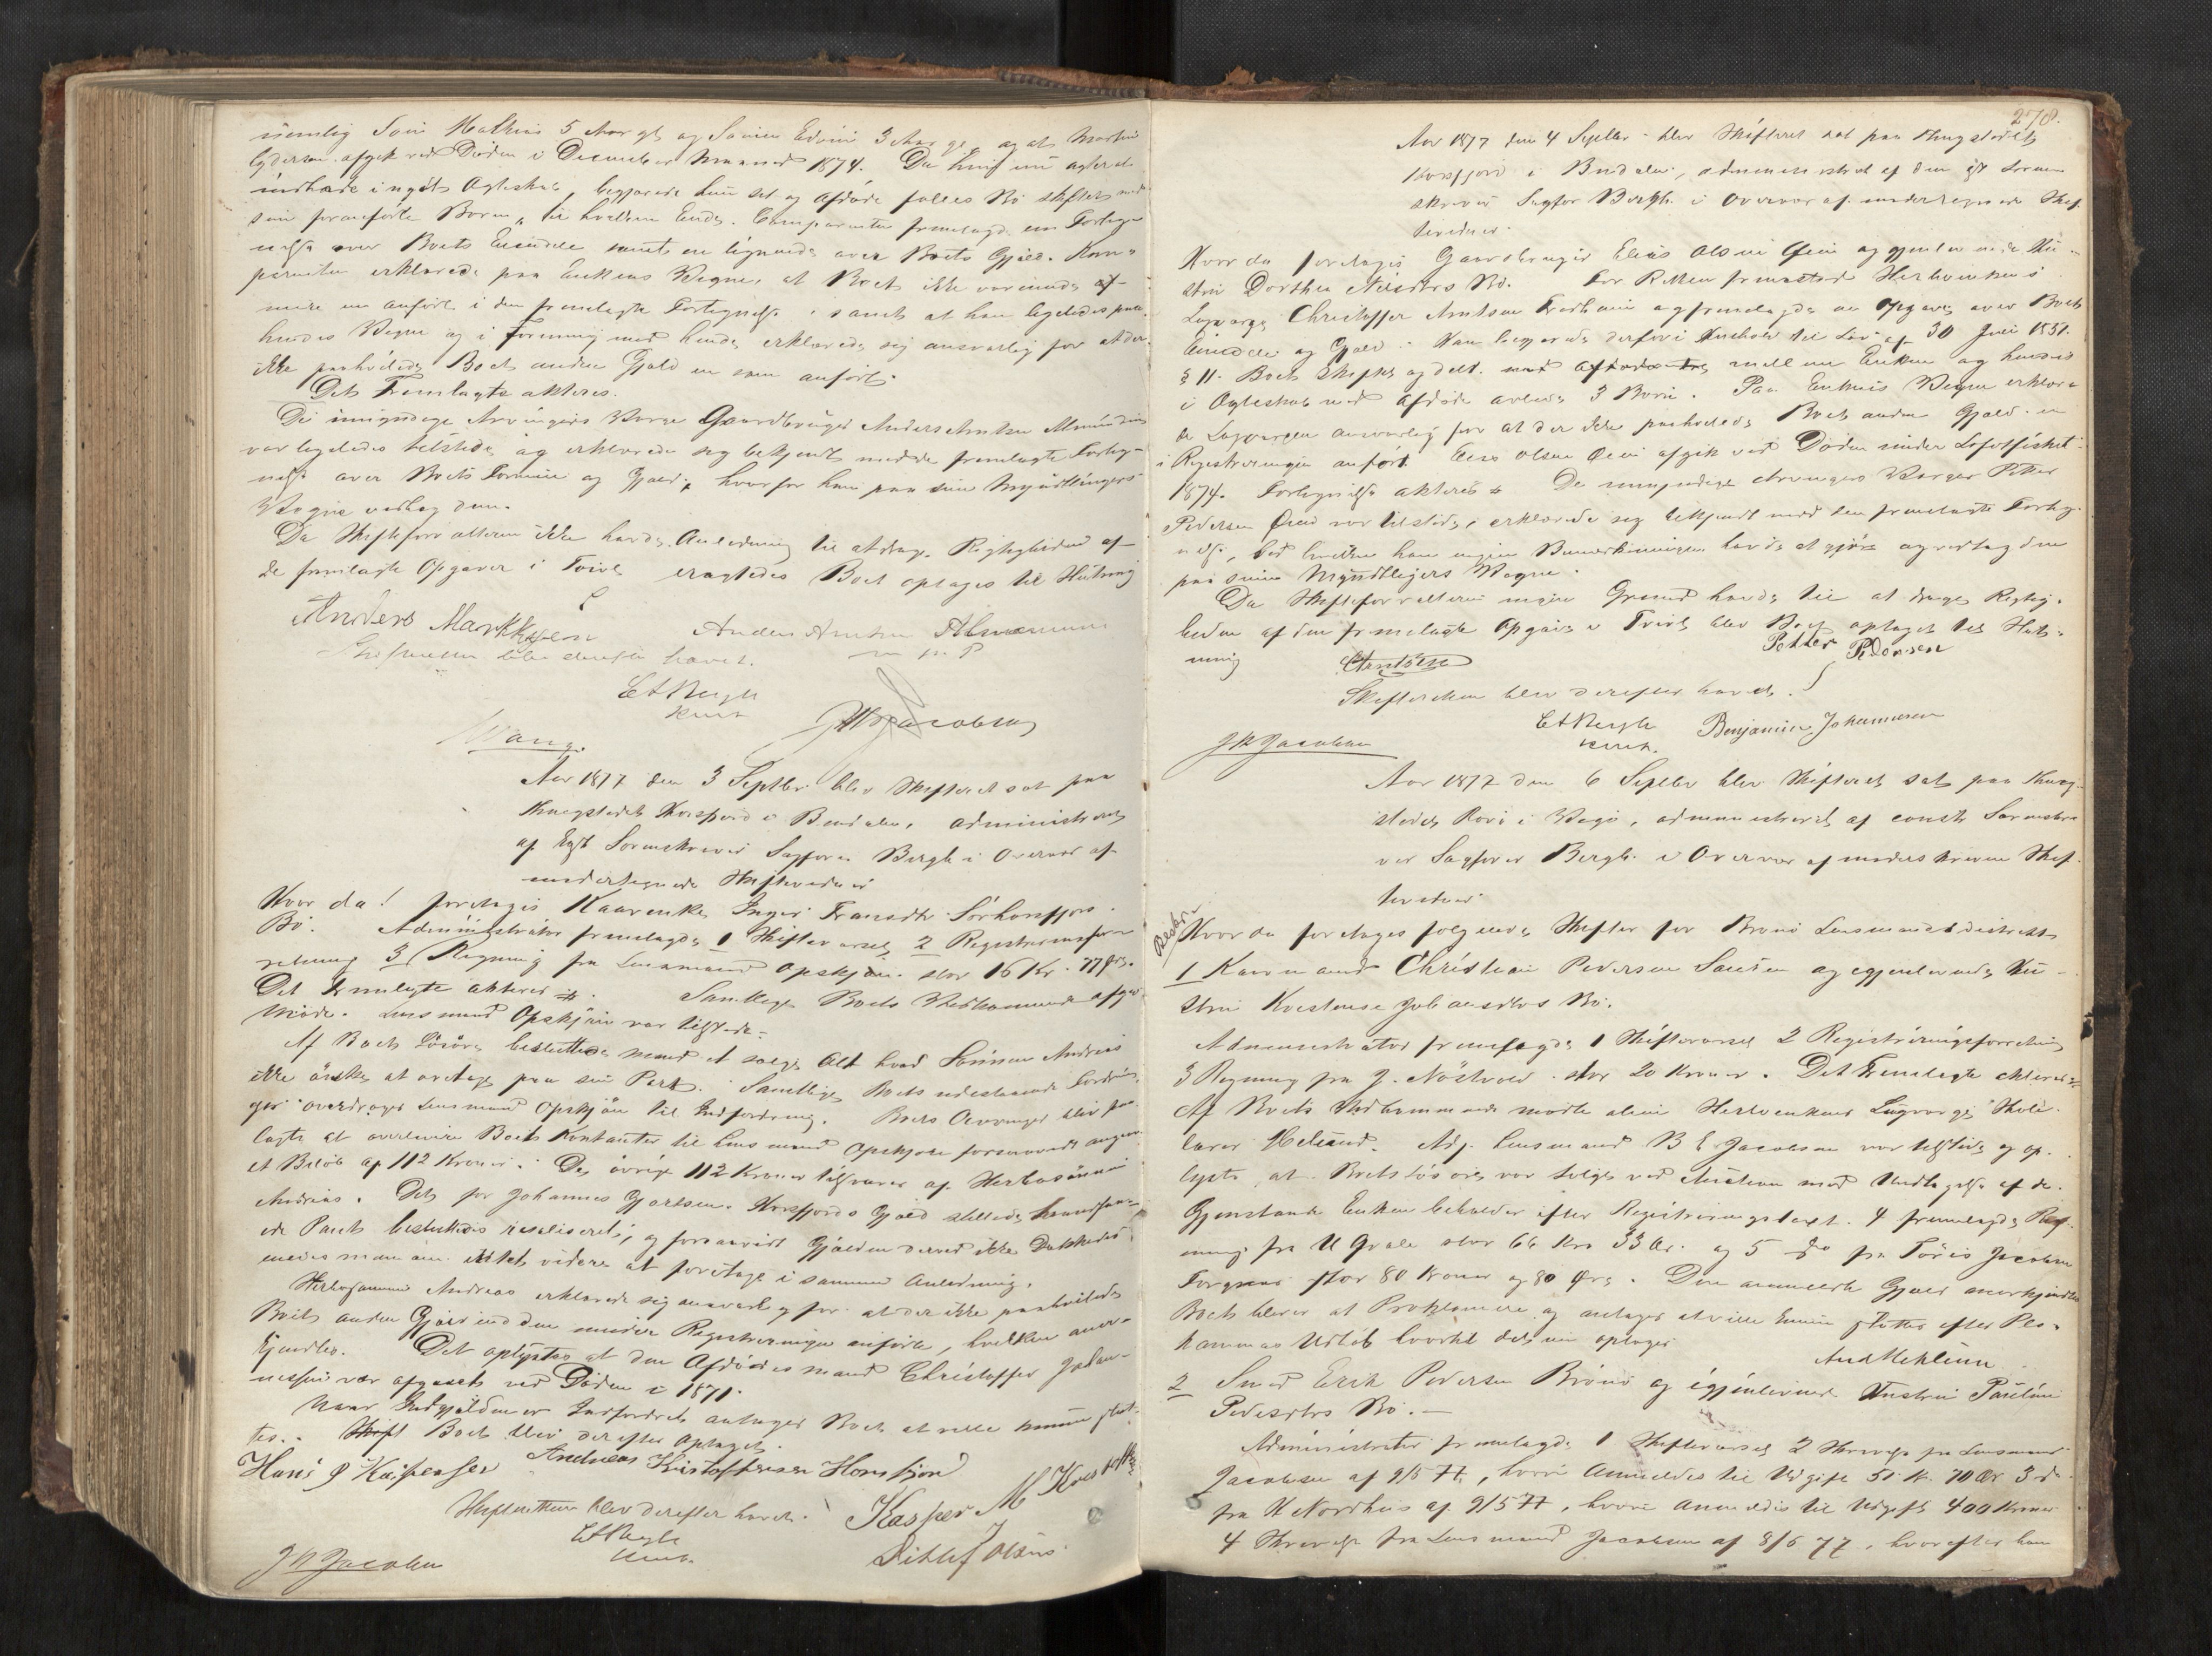 nemlig Søn Mathias 5 Aar gl. og Sønnen Edvin 3 Aar gl. og at Martin
afgik ved Døden i December Maaned 1874. Da hun nu agter at
indtræde i nyt Ægteskab, begjærede hun sit og Afdøde fælles Bo skiftet med
sine foranførte Børn, til hvilken Ende Comparenten fremlagde en Forteg-
nelse over Boets Eiendele samt en lignende over Boets Gjæld. Kom-
parenten erklærede paa Enkens Vegne, at Boet ikke var eiende af
mere en anført i den fremlagte Fortegnelse, samt at han ligeledes paa
hendes Vegne og i Forening med hende erklærede sig ansvarlig for at der
ikke paahvilede Boet anden Gjæld en som anført.
Det Fremlagte akteres.
De umyndige Arvingers Værge Gaardbruger Anders Arntsen
var ligeledes tilstede og erklærede sig bekjendt med de fremlagte Forteg-
nelse over Boets Formue og Gjæld, hvorfor han paa sine Myndlingers
Vegne vedtog dem.
Da Skifteforvalteren ikke havde Anledning til at drage Rigtigheden af
de fremlagte Opgaver i Tvivl eragtedes Boet optaget til Slutning
Anders Markussen Anders Arntsen
m. p. P
Skifteretten blev derefter hævet.
C A Bergh
konst.
J P Jacobsen
Aar 1877 den 3 Septbr. blev Skifteret sat paa
Thingstedet Horsfjord i Bindalen, administreret
af Sorenskriver Sagfører Bergh i Overvær af
undertegnede Skiftevidner
Hvor da! foretages Kaarenke Inger Fransdtr. Sørhorsfjord
Bo. Administrator fremlagde 1 Skiftevarsel, 2 Registreringsfor-
retning 3 Regning fra Lensmand Opskjøn stor 16 Kr. 77 Øre.
Det Fremlagte akteres. Samtlige Boets Vedkommende
Møde. Lensmand Opskjøn var tilstede.
Af Boets Løsøre besluttedes at sælge Alt hvad Sønnen Andreas
ikke ønsker at overtage paa sin Part. Samtlige Boets udestaaende Fordrin-
ger overdrages Lensmand Opskjøn til Indfordring. Boets Arvinger blev paa-
lagte at overlevere Boets Kontanter til Lensmand Opskjøn forsaavidt
et Beløb af 112 Kroner. De øvrige 112 Kroner tilsvares af Sterbosønnen
Andreas. Det for Johannes Horsfjords Gjæld stillede
Pant besluttedes realiseret, og forsaavidt Gjælden derved ikke Dækkedes
enedes man om intet videre at foretage i samme Anledning.
Sterbosønnen Andreas erklærede sig ansvarlig for at der ikke paahvilede
Boet anden Gjæld end den under Registreringen anførte, hvilken aner-
kjendtes. Det oplystes at den Afdødes mand Christoffer Johan-
nessen var afgaaet ved Døden i 1871.
Naar Indgjælden er Indfordret antages Boet at ville kunne slut-
tes. Boet blev derefter Optaget.
Hans P Kaspersen Andreas Kristoffersen Horsfjord
Skifteretten blev derefter hævet. Kasper M
C A Bergh
konst.
J P Jacobsen Ditlef Olsen
278.
Aar 1877 den 4 Septbr. blev Skifteret sat paa Thingstedet
Horsfjord i Bindalen, administreret af den Soren-
skriver Sagfør Bergh i Overvær af undertegnede Skif-
tevidner.
Hvor da foretages Gaardbruger Elias Olsen Øien og gjenlevende Hu-
stru Dorthea Nilsdtrs Bo. For Retten fremmødte Sterboenkens
Lagværge Christoffer Arntsen og fremlagde en Opgave over Boets
Eiendele og Gjæld. Han begjærede derfor i Henhold til Lov af 30 Juli 1851.
§ 11. Boet Skiftet og delt mellem Enken og hendes
i Ægteskab med Afdøde avlede 3 Børn. Paa Enkens Vegne erklæ-
de Lagværgen ansvarlig for at der ikke paahvilede Boet anden Gjæld en
i Registreringen anført. Elias Olsen Øien afgik ved Døden under Lofotfisket
1874. Fortegnelse akteres. De umyndige Arvingers Værger Petter
Pedersen Øien var tilstede, erklærede sig bekjendt med den fremlagte Forteg-
nelse, ved hvilken han ingen Bemærkninger havde at gjøre og vedtog den
paa sine Myndlingers Vegne.
Da Skifteforvalteren ingen Grund havde til at drage Rigtig-
heden af den fremlagte Opgave i Tvivl blev Boet optaget til Slut-
ning C Arntsen Petter Pedersen
Skifteretten blev derefter hævet.
C A Bergh Benjamin Johannesen
konst.
J P Jacobsen
Aar 1877 den 6 Septbr blev Skifteret sat paa Thing-
stedet Rørø i Vegø, administreret af const. Sorenskri-
ver Sagfører Bergh i Overvær af underskrevne Skif-
tevidner
Hvor da foretages følgende Skifter for Brønø Lensmandsdistrikt
1 Kaarmand Christian Pedersen og gjenlevende Hu-
stru Johansdtrs Bo.
Administrator fremlagde 1 Skiftevarsel 2 Registreringsforretning
3 Regning fra J. Nøstvold stor 20 Kroner. Det Fremlagte akteres
Af Boets Vedkommende mødte alene Sterboenkens Lagværge Skole-
lærer. Adj. Lensmand B E Jacobsen var tilstede og op-
lyste, at Boets Løsøre var solgt ved Auktion med Undtagelse af de
Gjenstande Enken beholder efter Registreringstaxt. 4 fremlagde Reg-
ning fra U Qvale stor 66 Kr 33 Ør. og 5 do fra Jacobsen
stor 80 Kroner og 80 Øre. Den anmeldte Gjæld anerkjendtes
Boets blev at Proklamere og antages at ville kunne sluttes efter Pro-
klamas Udløb hvortil det nu optages
2 Smed Erik Pedersen Brønø og gjenlevende Hustru Pauline
Pedersdtrs Bo.
Administrator fremlagde 1 Skiftevarsel 2 Skrivelse fra Lensmand
Jacobsen af 9/5 77, hvori Anmeldes til Udgift 51 K. 70 Ør 3 do
fra K Nordhus af 9/5 77, hvori Anmeldes til Udgift 400 Kroner
4 Skrivelse fra Lensmand Jacobsen af 8/6 77, hvorefter han